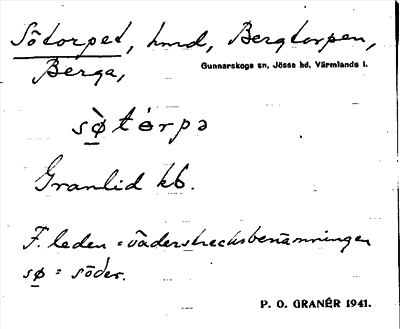 Sötorpet, hmd, Bergtorpen,
Berga,
Gunnarskogs sn, Jösse hd, Värmlands l.
sø̀tórpə
Granlid kb.
F. leden = väderstrecksbenämningen
sø = söder.
P. O. GRANÉR 1941.